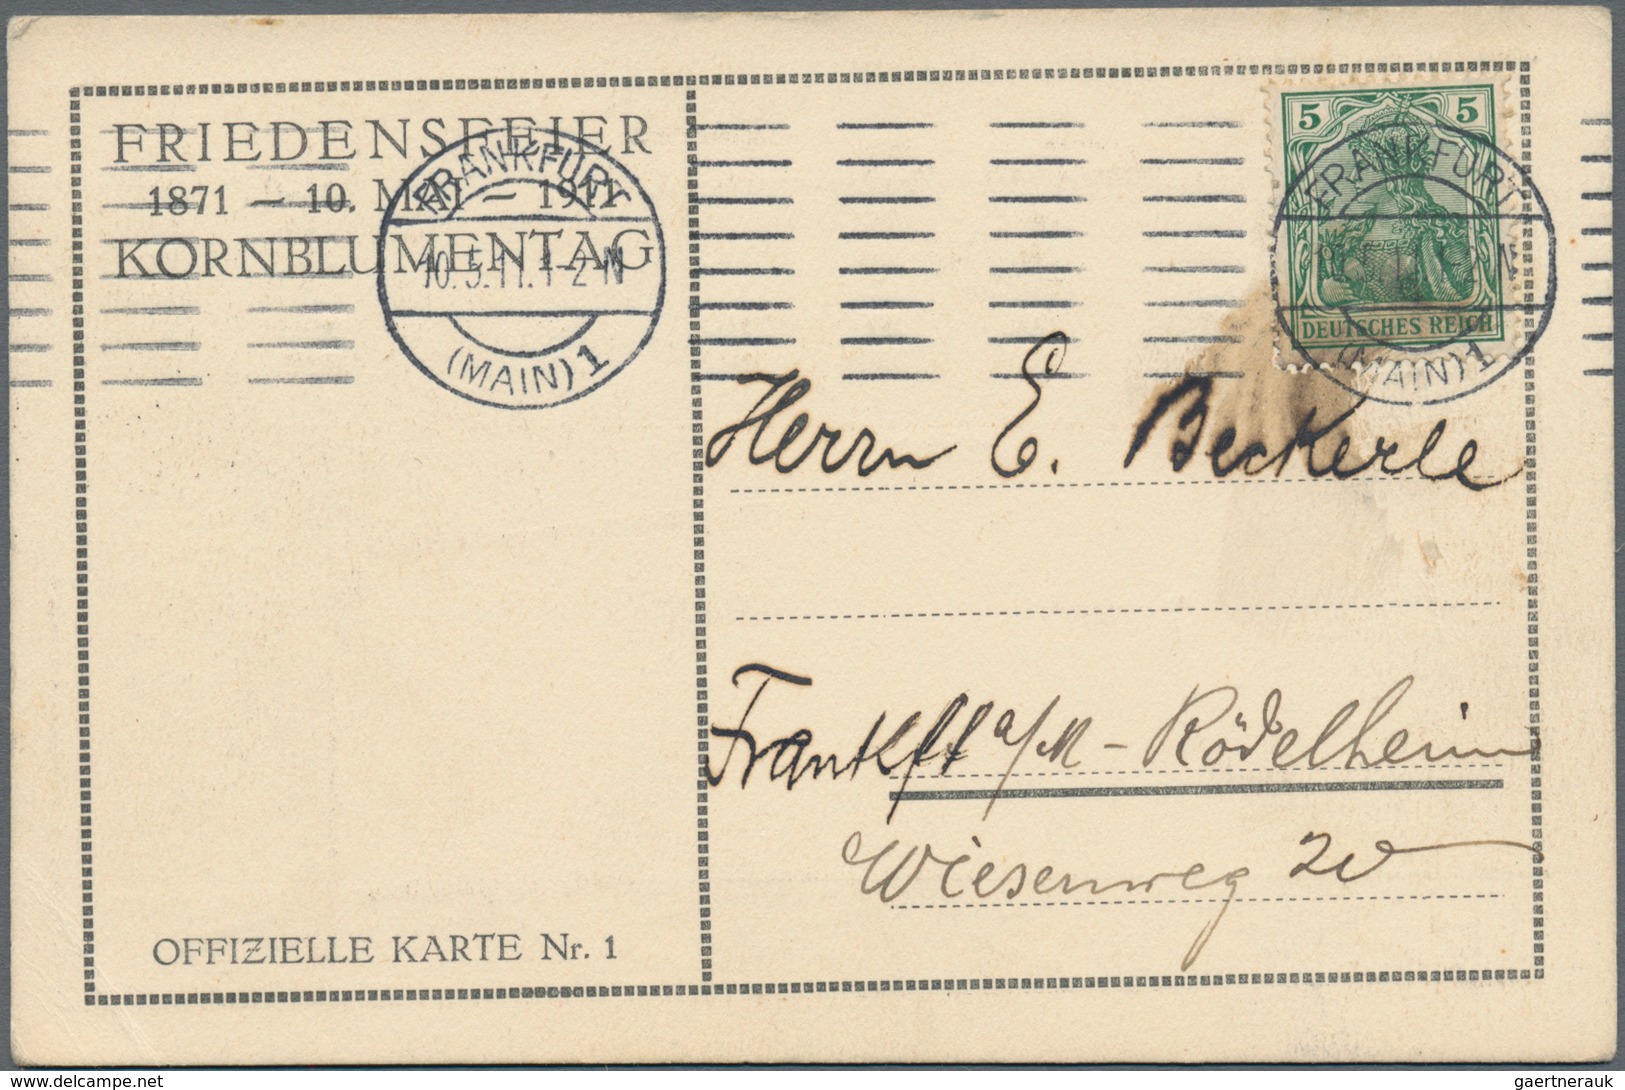 FRIEDENSFEIER
1871 — 10. MAI — 1911
KORNBLUMENTAG
FRANKFURT
10.5.11.1-2N
(MAIN) 1
5 5
DEUTSCHES REICH
FRANKFURT
(MAIN) 1
Herrn E. Beckerle
Frankft a/M - Rödelheim
Wiesenweg
OFFIZIELLE KARTE Nr. 1
© www.delcampe.net
gaertnerauk